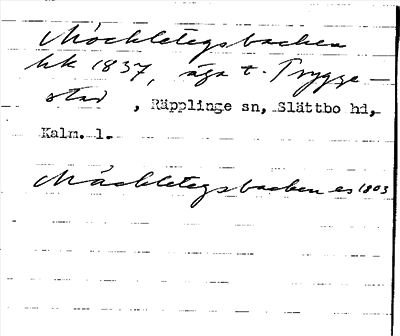 Möckletegsbacken
hk 1837, äga t. Trygge
stad, Räpplinge sn, Slättbo hd,
Kalm. l.
Mäckletegsbacken es 1803